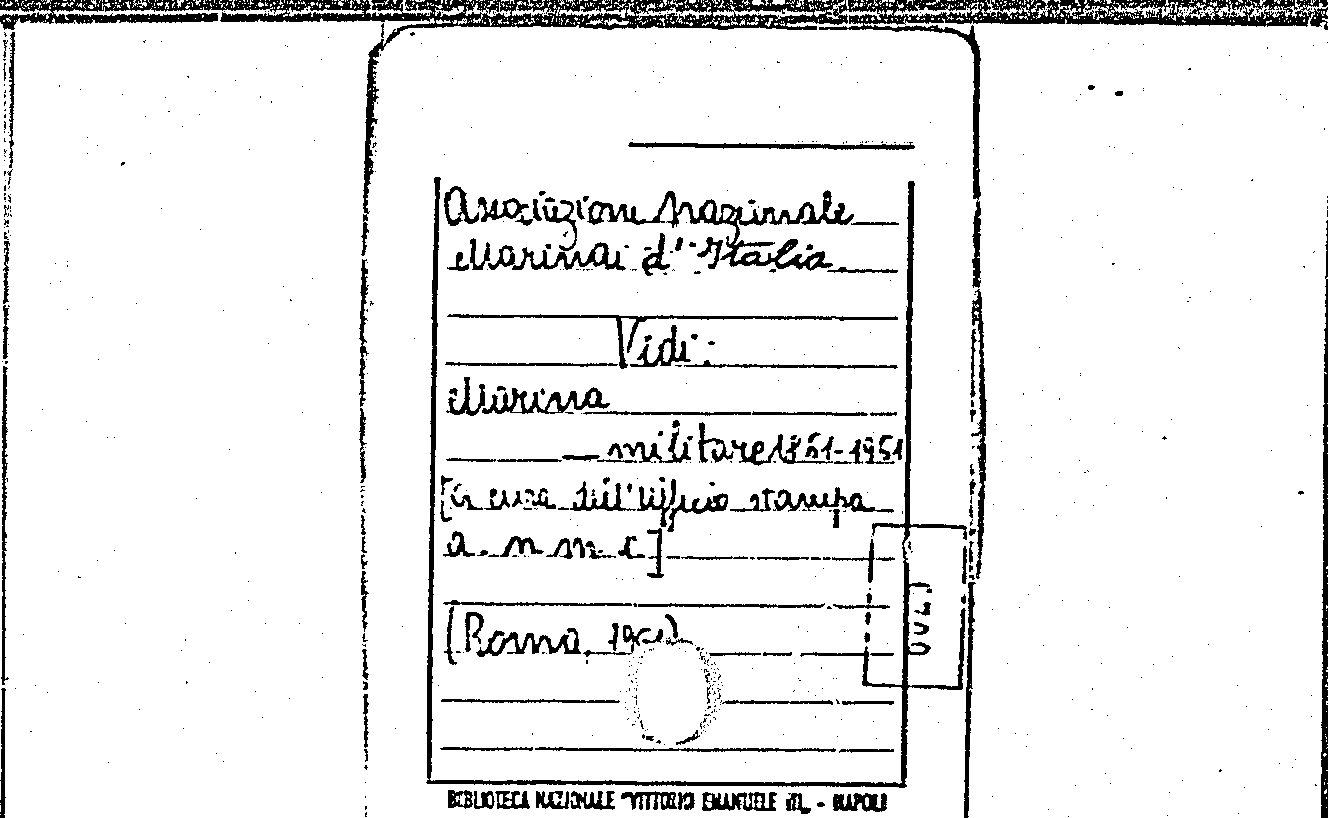 Associazione Nazionale
Marinai d'Italia
Vidi:
Marina
— militare 1861-1961
[a cura dell'Ufficio stampa
a. n. m. i.]
(Roma, 1961)
BIBLIOTECA NAZIONALE "VITTORIO EMANUELE III" - NAPOLI